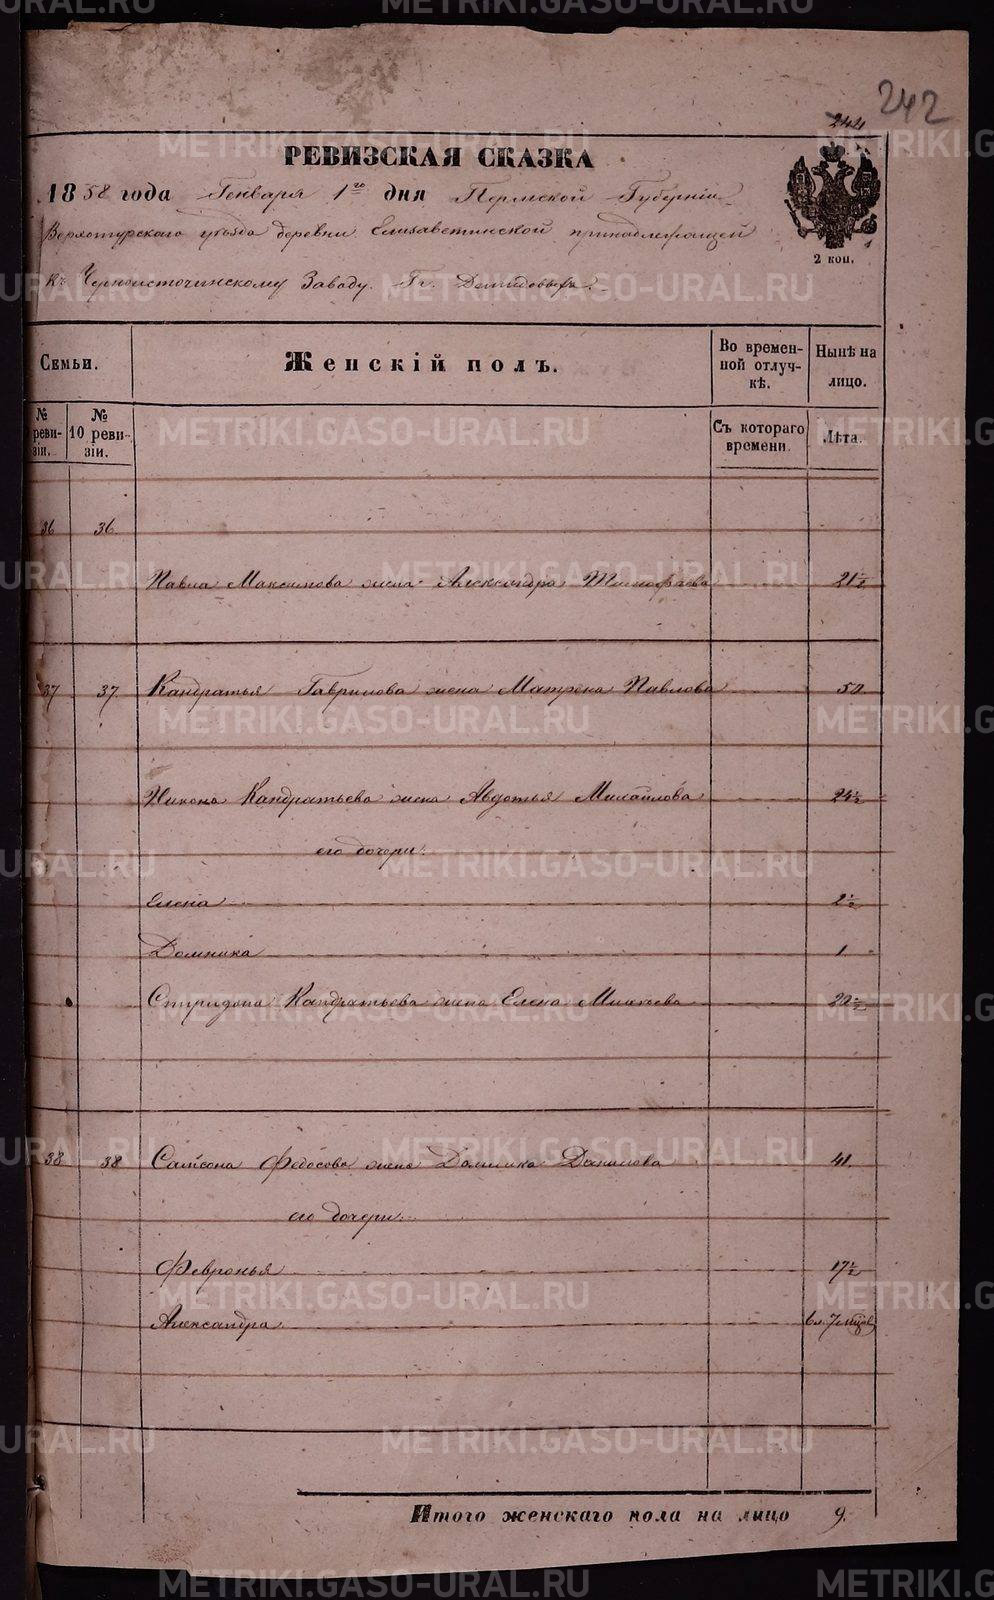 242
244
РЕВИЗСКАЯ СКАЗКА
1858 года Генваря 1го дня Пермской Губернiи
Верхотурскаго уѣзда деревни Елизаветинской принадлежащей
къ Черноисточинскому Заводу. Гг. Демидовыхъ.
2 коп.
Семьи.
Женскiй полъ.
Во временной отлучкѣ.
Нынѣ на лицо.
№ реви-зiи.
№ 10 реви-зiи.
Съ котораго времени.
Лѣта.
36 36
Павла Максимова жена Александра Тимофѣева 21½
37 37 Кандратья Гаврилова жена Матрена Павлова 50
Никона Кандратьева жена Авдотья Михайлова 24½
его дочери:
Елена 2½
Домника 1
Спиридона Кандратьева жена Елена 20½
38 38 Самсона Федосова жена Домника Данилова 41.
его дочери:
Февронья 17½
Александра 6 л. 7 мцов
Итого женскаго пола на лицо 9.
METRIKI.GASO-URAL.RU